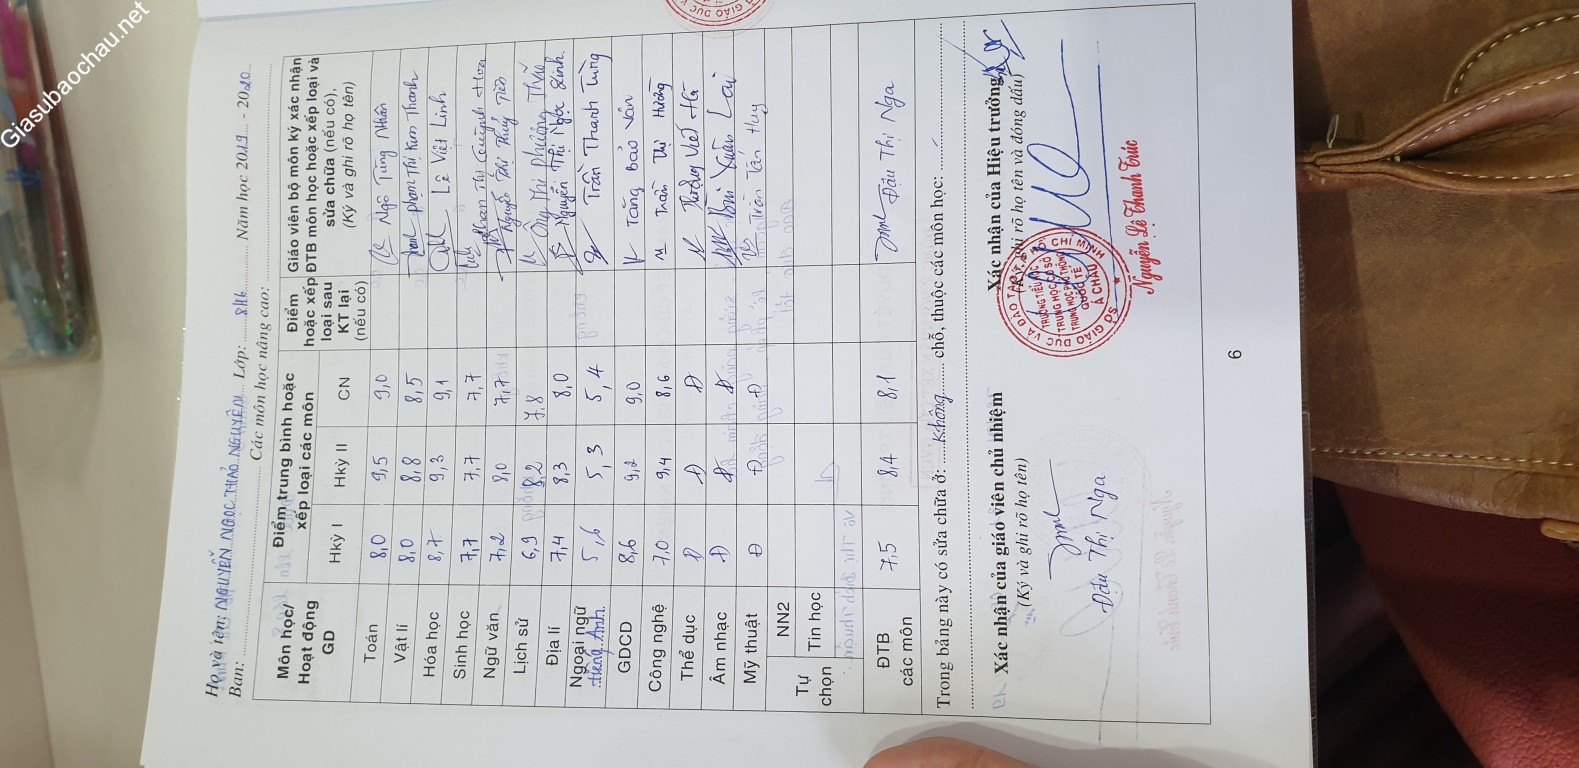 Giasubaochau.net
Họ và tên: NGUYỄN NGỌC THẢO NGUYÊN Lớp: 8/16 Năm học 2019 - 2020
Ban: Các môn học nâng cao:
Môn học/ Hoạt động GD
Điểm trung bình hoặc xếp loại các môn
Điểm hoặc xếp loại sau KT lại (nếu có)
Giáo viên bộ môn ký xác nhận ĐTB môn học hoặc xếp loại và sửa chữa (nếu có), (Ký và ghi rõ họ tên)
Hkỳ I Hkỳ II CN
Toán 8,0 9,5 9,0 Ngô Tùng Nhân
Vật lí 8,0 8,8 8,5 Phạm Thị Kim Thanh
Hóa học 8,7 9,3 9,1 Lê Viết Linh
Sinh học 7,7 7,7 7,7 Phan Thị Quỳnh Hoa
Ngữ văn 7,2 8,0 7,7 Nguyễn Thị Thuỷ Tiên
Lịch sử 6,9 8,2 7,8 Ông Thị Phương Thảo
Địa lí 7,4 8,3 8,0 Nguyễn Thị Ngọc Sinh
Ngoại ngữ tiếng Anh 5,6 5,3 5,4 Trần Thanh Tùng
GDCD 8,6 9,2 9,0 Tăng Bảo Vân
Công nghệ 7,0 9,4 8,6 Trần Thị Hường
Thể dục Đ Đ Đ Việt Hà
Âm nhạc Đ Đ Đ Bùi Xuân Lai
Mỹ thuật Đ Đ Đ Trần Tấn Huy
Tự chọn
NN2
Tin học
ĐTB các môn 7,5 8,4 8,1 Đậu Thị Nga
Trong bảng này có sửa chữa ở: không chỗ, thuộc các môn học:
Xác nhận của giáo viên chủ nhiệm
(Ký và ghi rõ họ tên)
Đậu Thị Nga
Xác nhận của Hiệu trưởng
(Ký, ghi rõ họ tên và đóng dấu)
SỞ GIÁO DỤC VÀ ĐÀO TẠO TP. HỒ CHÍ MINH
TRƯỜNG TIỂU HỌC
TRUNG HỌC CƠ SỞ
TRUNG HỌC PHỔ THÔNG
QUỐC TẾ
Á CHÂU
Nguyễn Lê Thanh Trúc
6